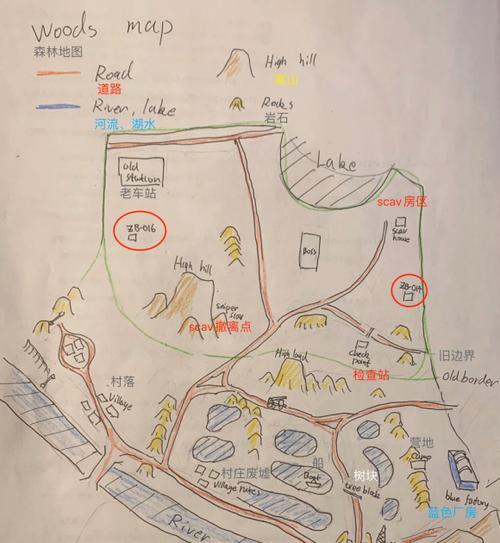 Woods map
森林地图
Road
道路
High hill
高山
River, lake
河流、湖水
Rocks
岩石
Lake
old
station
老车站
scav房区
scav
house
ZB-016
Boss
ZB-014
High hill
sniper
scav
scav撤离点
check
point
检查站
旧边界
old border
High land
村落
Village
村庄废墟
Village ruies
船
Boat
树块
tree block
营地
Camp
blue factory
蓝色厂房
River